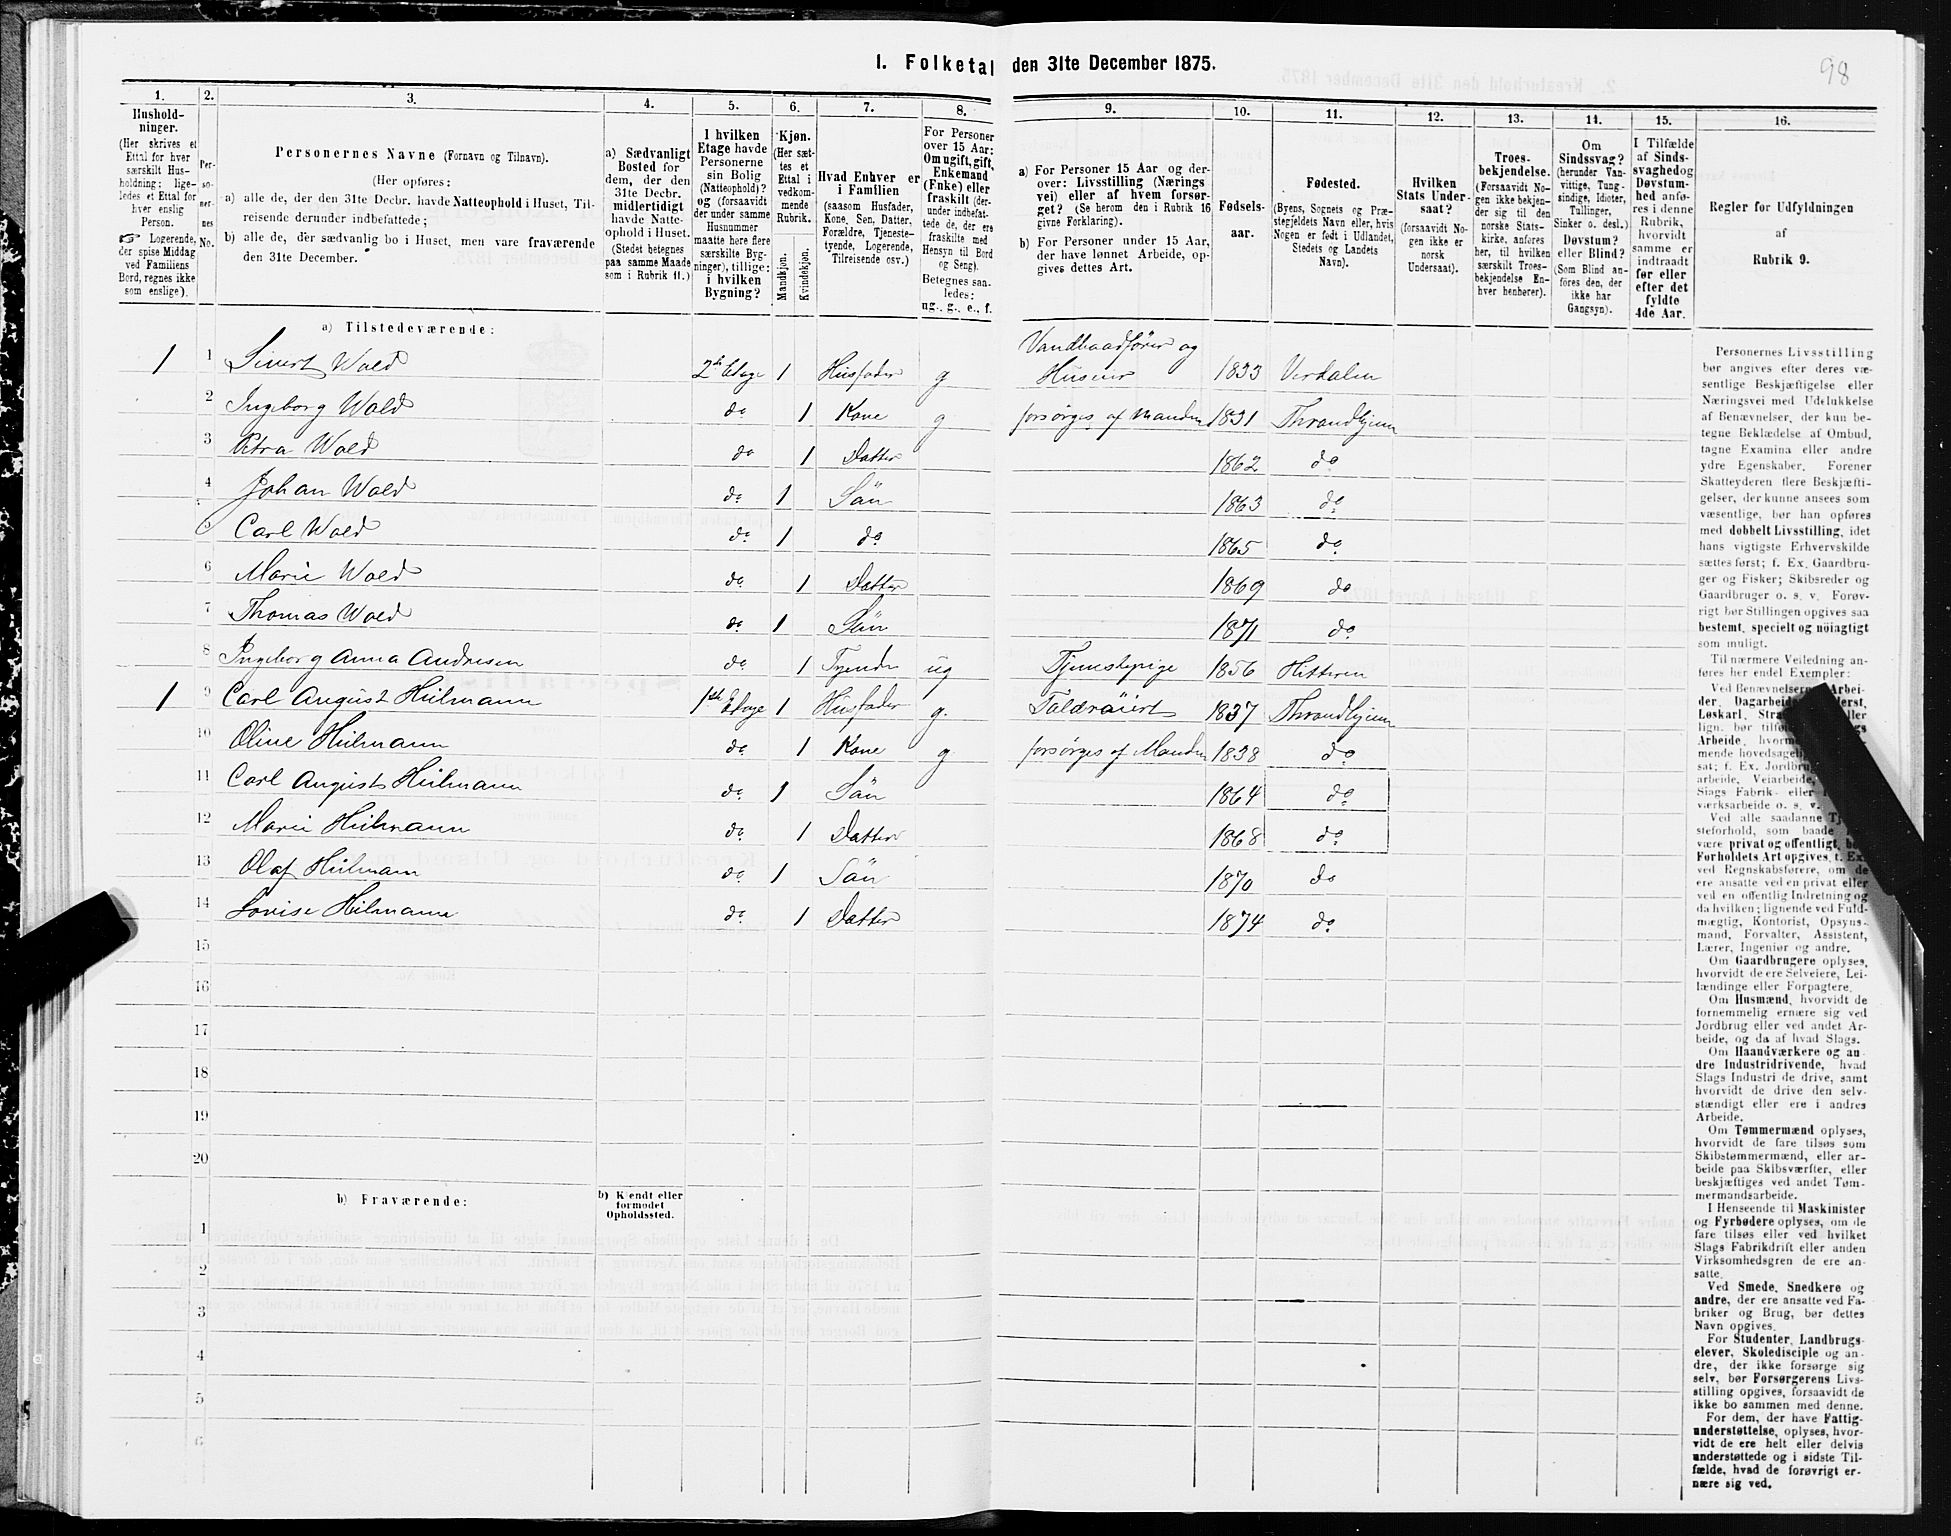 98
1. Folketal den 31te December 1875.
1. 2. 3. 4. 5. 6. 7. 8. 9. 10. 11. 12. 13. 14. 15. 16.
Hushold-
ninger.
(Her skrives et
Ettal for hver
særskilt Hus-
holdning; lige-
ledes et Ettal for
hver enslig
Person.
☞ Logerende,
der spise Middag
ved Familiens
Bord, regnes ikke
som enslige).
Per-
so-
ner-
nes
No.
Personernes Navne (Fornavn og Tilnavn).
(Her opføres:
a) alle de, der den 31te Decbr. havde Natteophold i Huset, Til-
reisende derunder indbefattede;
b) alle de, der sædvanlig bo i Huset, men vare fraværende
den 31te December.
a) Sædvanligt
Bosted for
dem, der den
31te Decbr.
midlertidigt
havde Natte-
ophold i Huset.
(Stedet betegnes
paa samme Maade
som i Rubrik 11.)
I hvilken
Etage havde
Personerne
sin Bolig
(Natteophold)?
og (forsaavidt
der under samme
Husnummer
maatte høre flere
særskilte Byg-
ninger), tillige:
i hvilken
Bygning?
Kjøn.
(Her sæt-
tes et
Ettal i
vedkom-
mende
Rubrik.
Mandkjøn.
Kvindekjøn.
Hvad Enhver er
i Familien
(saasom Husfader,
Kone, Søn, Datter,
Forældre, Tjeneste-
tyende, Logerende,
Tilreisende osv.)
For Personer
over 15 Aar:
Om ugift, gift,
Enkemand
(Enke) eller
fraskilt (der-
under indbefat-
tede de, der ere
fraskilte med
Hensyn til Bord
og Seng).
Betegnes saa-
ledes:
ug., g., e., f.
a) For Personer 15 Aar og der-
over: Livsstilling (Nærings
vei) eller af hvem forsør-
get? (Se herom den i Rubrik 16
givne Forklaring).
b) For Personer under 15 Aar,
der have lønnet Arbeide, op-
gives dettes Art.
Fødsels-
aar.
Fødested.
(Byens, Sognets og Præ-
stegjeldets Navn eller, hvis
Nogen er født i Udlandet,
Stedets og Landets
Navn).
Hvilken
Stats Under-
saat?
(forsaavidt No-
gen ikke er
norsk
Undersaat).
Troes-
bekjendelse.
(Forsaavidt No-
gen ikke bekjen-
der sig til den
norske Stats-
kirke, anføres
her, til hvilken
særskilt Troes-
bekjendelse En-
hver henhører).
Om
Sindssvag?
(herunder Van-
vittige, Tung-
sindige, Idioter,
Tullinger,
Sinker o. desl.)
Døvstum?
eller Blind?
(Som Blind an-
føres den, der
ikke har
Gangsyn).
I Tilfælde
af Sinds-
svaghed og
Døvstum-
hed anfø-
res i denne
Rubrik,
hvorvidt
samme er
indtraadt
før eller
efter det
fyldte
4de Aar.
Regler for Udfyldningen
af
Rubrik 9.
a) Tilstedeværende:
1 1 Sivert Wold 2de Etage 1 Husfader g Vandbaadfører og Huseier 1833 Verdalen
2 Ingeborg Wold do 1 Kone g forsørges af Manden 1831 Throndhjem
3 Petra Wold do 1 Datter 1862 do
4 Johan Wold do 1 Søn 1863 do
5 Carl Wold do 1 do 1865 do
6 Marie Wold do 1 Datter 1869 do
7 Thomas Wold do 1 Søn 1871 do
8 Ingeborg Anna Andresen do 1 Tyende ug Tjenestepige 1856 Hitteren
1 9 Carl August Heilmann 1ste Etage 1 Husfader g. 1837 Throndhjem
10 Oline Heilmann do 1 Kone g. forsørges af Manden 1838 do
11 Carl August Heilmann do 1 Søn 1864 do
12 Marie Heilmann do 1 Datter 1868 do
13 Olaf Heilmann do 1 Søn 1870 do
14 Lovise Heilmann do 1 Datter 1874 do
15
16
17
18
19
20
b) Fraværende: b) Kjendt eller
formodet
Opholdssted.
1
2
3
4
5
6
Personernes Livsstilling
bør angives efter deres væ-
sentlige Beskjæftigelse eller
Næringsvei med Udelukkelse
af Benævnelser, der kun be-
tegne Beklædelse af Ombud,
tagne Examina eller andre
ydre Egenskaber. Forener
Skatteyderen flere Beskjæfti-
gelser, der kunne ansees som
væsentlige, bør han opføres
med dobbelt Livsstilling, idet
hans vigtigste Erhvervskilde
sættes først; f. Ex. Gaardbru-
ger og Fisker; Skibsreder og
Gaardbruger o. s. v. Forøv-
rigt bør Stillingen opgives saa
bestemt, specielt og nöiagtigt
som muligt.
Til nærmere Veiledning an-
føres her endel Exempler:
Ved Benævnelserne Arbei-
der, Dagarbeider
Løskarl,
lign. bør
Arbeide,
mende hovedsagelig
sat; f. Ex. Jordbrug
arbeide, Veiarbeide,
Slags Fabrik- eller
værksarbeide o. s. v.
Ved alle saadanne
steforhold, som baade
være privat og offentligt, bør
Forholdets Art opgives, f. Ex.
ved Regnskabsførere, om de
ere ansatte ved en privat eller
ved en offentlig Indretning og
da hvilken; lignende ved Fuld-
mægtig, Kontorist, Opsyns-
mand, Forvalter, Assistent,
Lærer, Ingeniør og andre.
Om Gaardbrugere oplyses,
hvorvidt de ere Selveiere, Lei-
lændinge eller Forpagtere.
Om Husmænd, hvorvidt de
fornemmelig ernære sig ved
Jordbrug eller ved andet Ar-
beide, og da af hvad Slags.
Om Haandværkere og an-
dre Industridrivende, hvad
Slags Industri de drive, samt
hvorvidt de drive den selv-
stændigt eller ere i andres
Arbeide.
Om Tømmermænd oplyses,
hvorvidt de fare tilsøs som
Skibstømmermænd, eller ar-
beide paa Skibsværfter, eller
beskjæftiges ved andet Tøm-
mermandsarbeide.
I Henseende til Maskinister
og Fyrbødere oplyses, om de
fare tilsøs eller ved hvilket
Slags Fabrikdrift eller anden
Virksomhedsgren de ere an-
satte.
Ved Smede, Snedkere og
andre, der ere ansatte ved Fa-
briker og Brug, bør dettes
Navn opgives.
For Studenter, Landbrugs-
elever, Skoledisciple og an-
dre, der ikke forsørge sig
selv, bør Forsørgerens Livs-
stilling opgives, forsaavidt de
ikke bo sammen med denne.
For dem, der have Fattig-
understøttelse, oplyses, hvor-
vidt de ere helt eller delvis
understøttede og i sidste Til-
fælde, hvad de forøvrigt er-
nære sig ved.